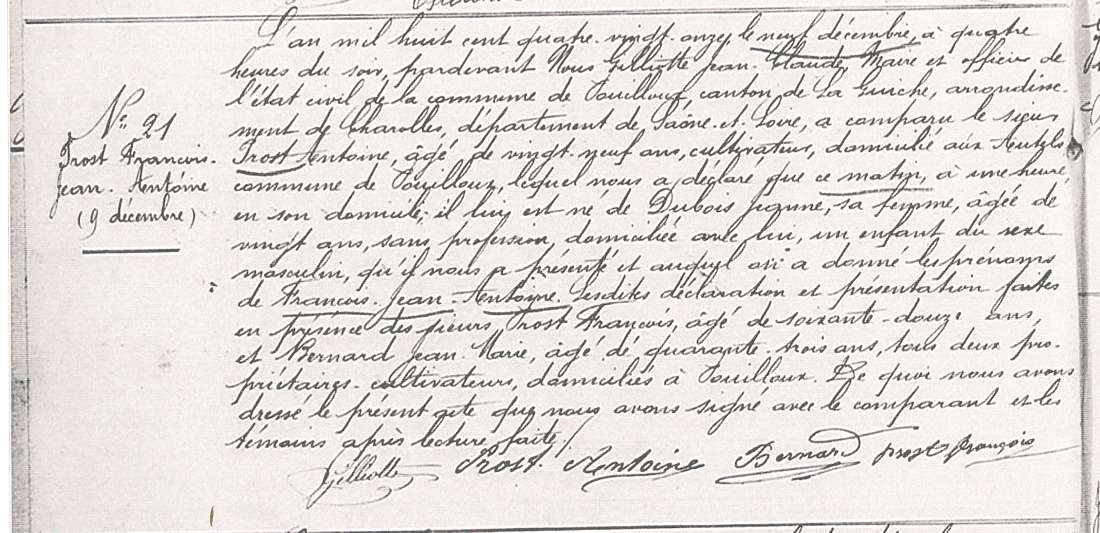 L'an mil huit cent quatre-vingt-onze, le neuf décembre, à quatre
heures du soir, pardevant Nous Gilliotte Jean-Claude, Maire et officier de
l'état civil de la commune de Pouilloux, canton de La Guiche, arrondisse-
ment de Charolles, département de Saône-et-Loire, a comparu le sieur
Prost Antoine, âgé de vingt-neuf ans, cultivateur, domicilié aux
commune de Pouilloux, lequel nous a déclaré que ce matin, à une heure,
en son domicile, il lui est né de Dubois Jeanne, sa femme, âgée de
vingt ans, sans profession, domiciliée avec lui, un enfant du sexe
masculin, qu'il nous a présenté et auquel on a donné les prénoms
de Francois-Jean-Antoine. Lesdites déclaration et présentation faites
en présence des sieurs Prost Francois, âgé de soixante-douze ans,
et Bernard Jean-Marie, âgé de quarante-trois ans, tous deux pro-
priétaires-cultivateurs, domiciliés à Pouilloux. De quoi nous avons
dressé le présent acte que nous avons signé avec le comparant et les
témoins après lecture faite./.
Gilliotte Prost Antoine Bernard Prost françois
N° 21
Prost Francois-
Jean-Antoine
(9 décembre)